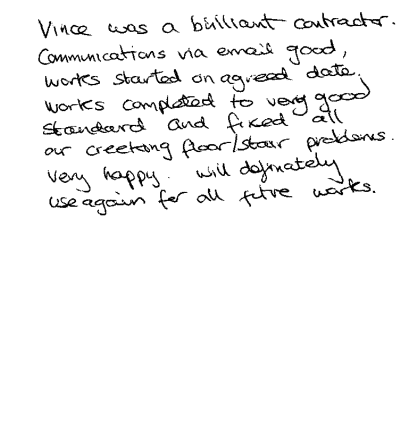 Vince was a brilliant contractor.
Communications via email good,
works started on agreed date.
works completed to very good
standard and fixed all
our creeking floor/stair problems.
very happy. will definately
use again for all futre works.